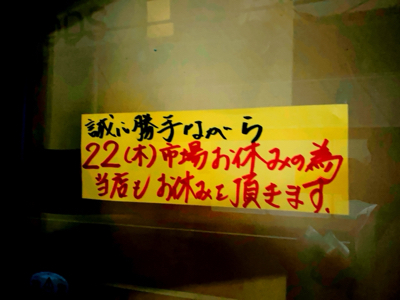 誠に勝手ながら
22(木)市場お休みの為
当店もお休みを頂きます。